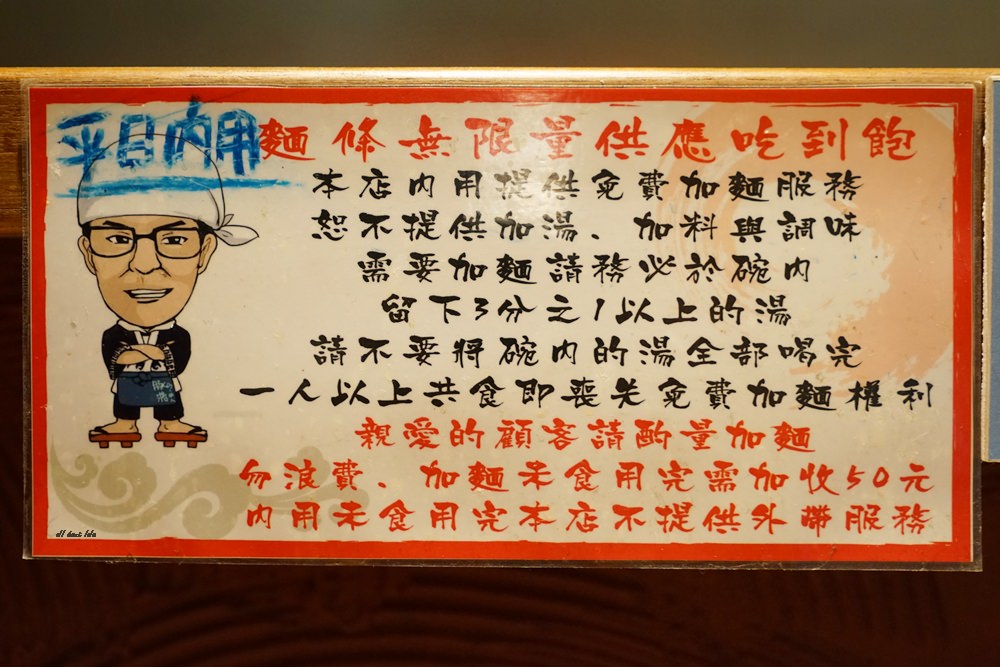 平日內用麵條無限量供應吃到飽
本店內用提供免費加麵服務
恕不提供加湯、加料與調味
需要加麵請務必於碗內
留下3分之1以上的湯
請不要將碗內的湯全部喝完
一人以上共食即喪失免費加麵權利
親愛的顧客請酌量加麵
勿浪費、加麵未食用完需加收50元
內用未食用完本店不提供外帶服務